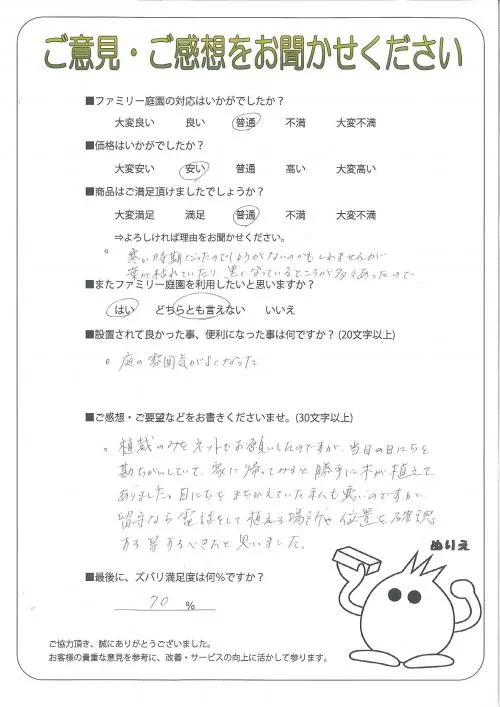 ご意見・ご感想をお聞かせください
■ファミリー庭園の対応はいかがでしたか？
大変良い 良い 普通 不満 大変不満
■価格はいかがでしたか？
大変安い 安い 普通 高い 大変高い
■商品はご満足頂けましたでしょうか？
大変満足 満足 普通 不満 大変不満
⇒よろしければ理由をお聞かせください。
寒い時期だったのでしょうがないのかもしれませんが
葉が枯れていたり 黒くなっているところが多々あったので
■またファミリー庭園を利用したいと思いますか？
はい どちらとも言えない いいえ
■設置されて良かった事、便利になった事は何ですか？(20文字以上)
庭の雰囲気がよくなった
■ご感想・ご要望などをお書きくださいませ。(30文字以上)
植裁のみをネットでお願いしたのですが、当日の日にちを
勘ちがいしていて、家に帰ってみると勝手に木が植えて
ありました。日にちをまちがえていた私も悪いのですが、
留守なら電話をして植える場所や位置を確認
する等するべきだと思いました。
ぬりえ
■最後に、ズバリ満足度は何%ですか？
70 %
ご協力頂き、誠にありがとうございました。
お客様の貴重な意見を参考に、改善・サービスの向上に活かして参ります。